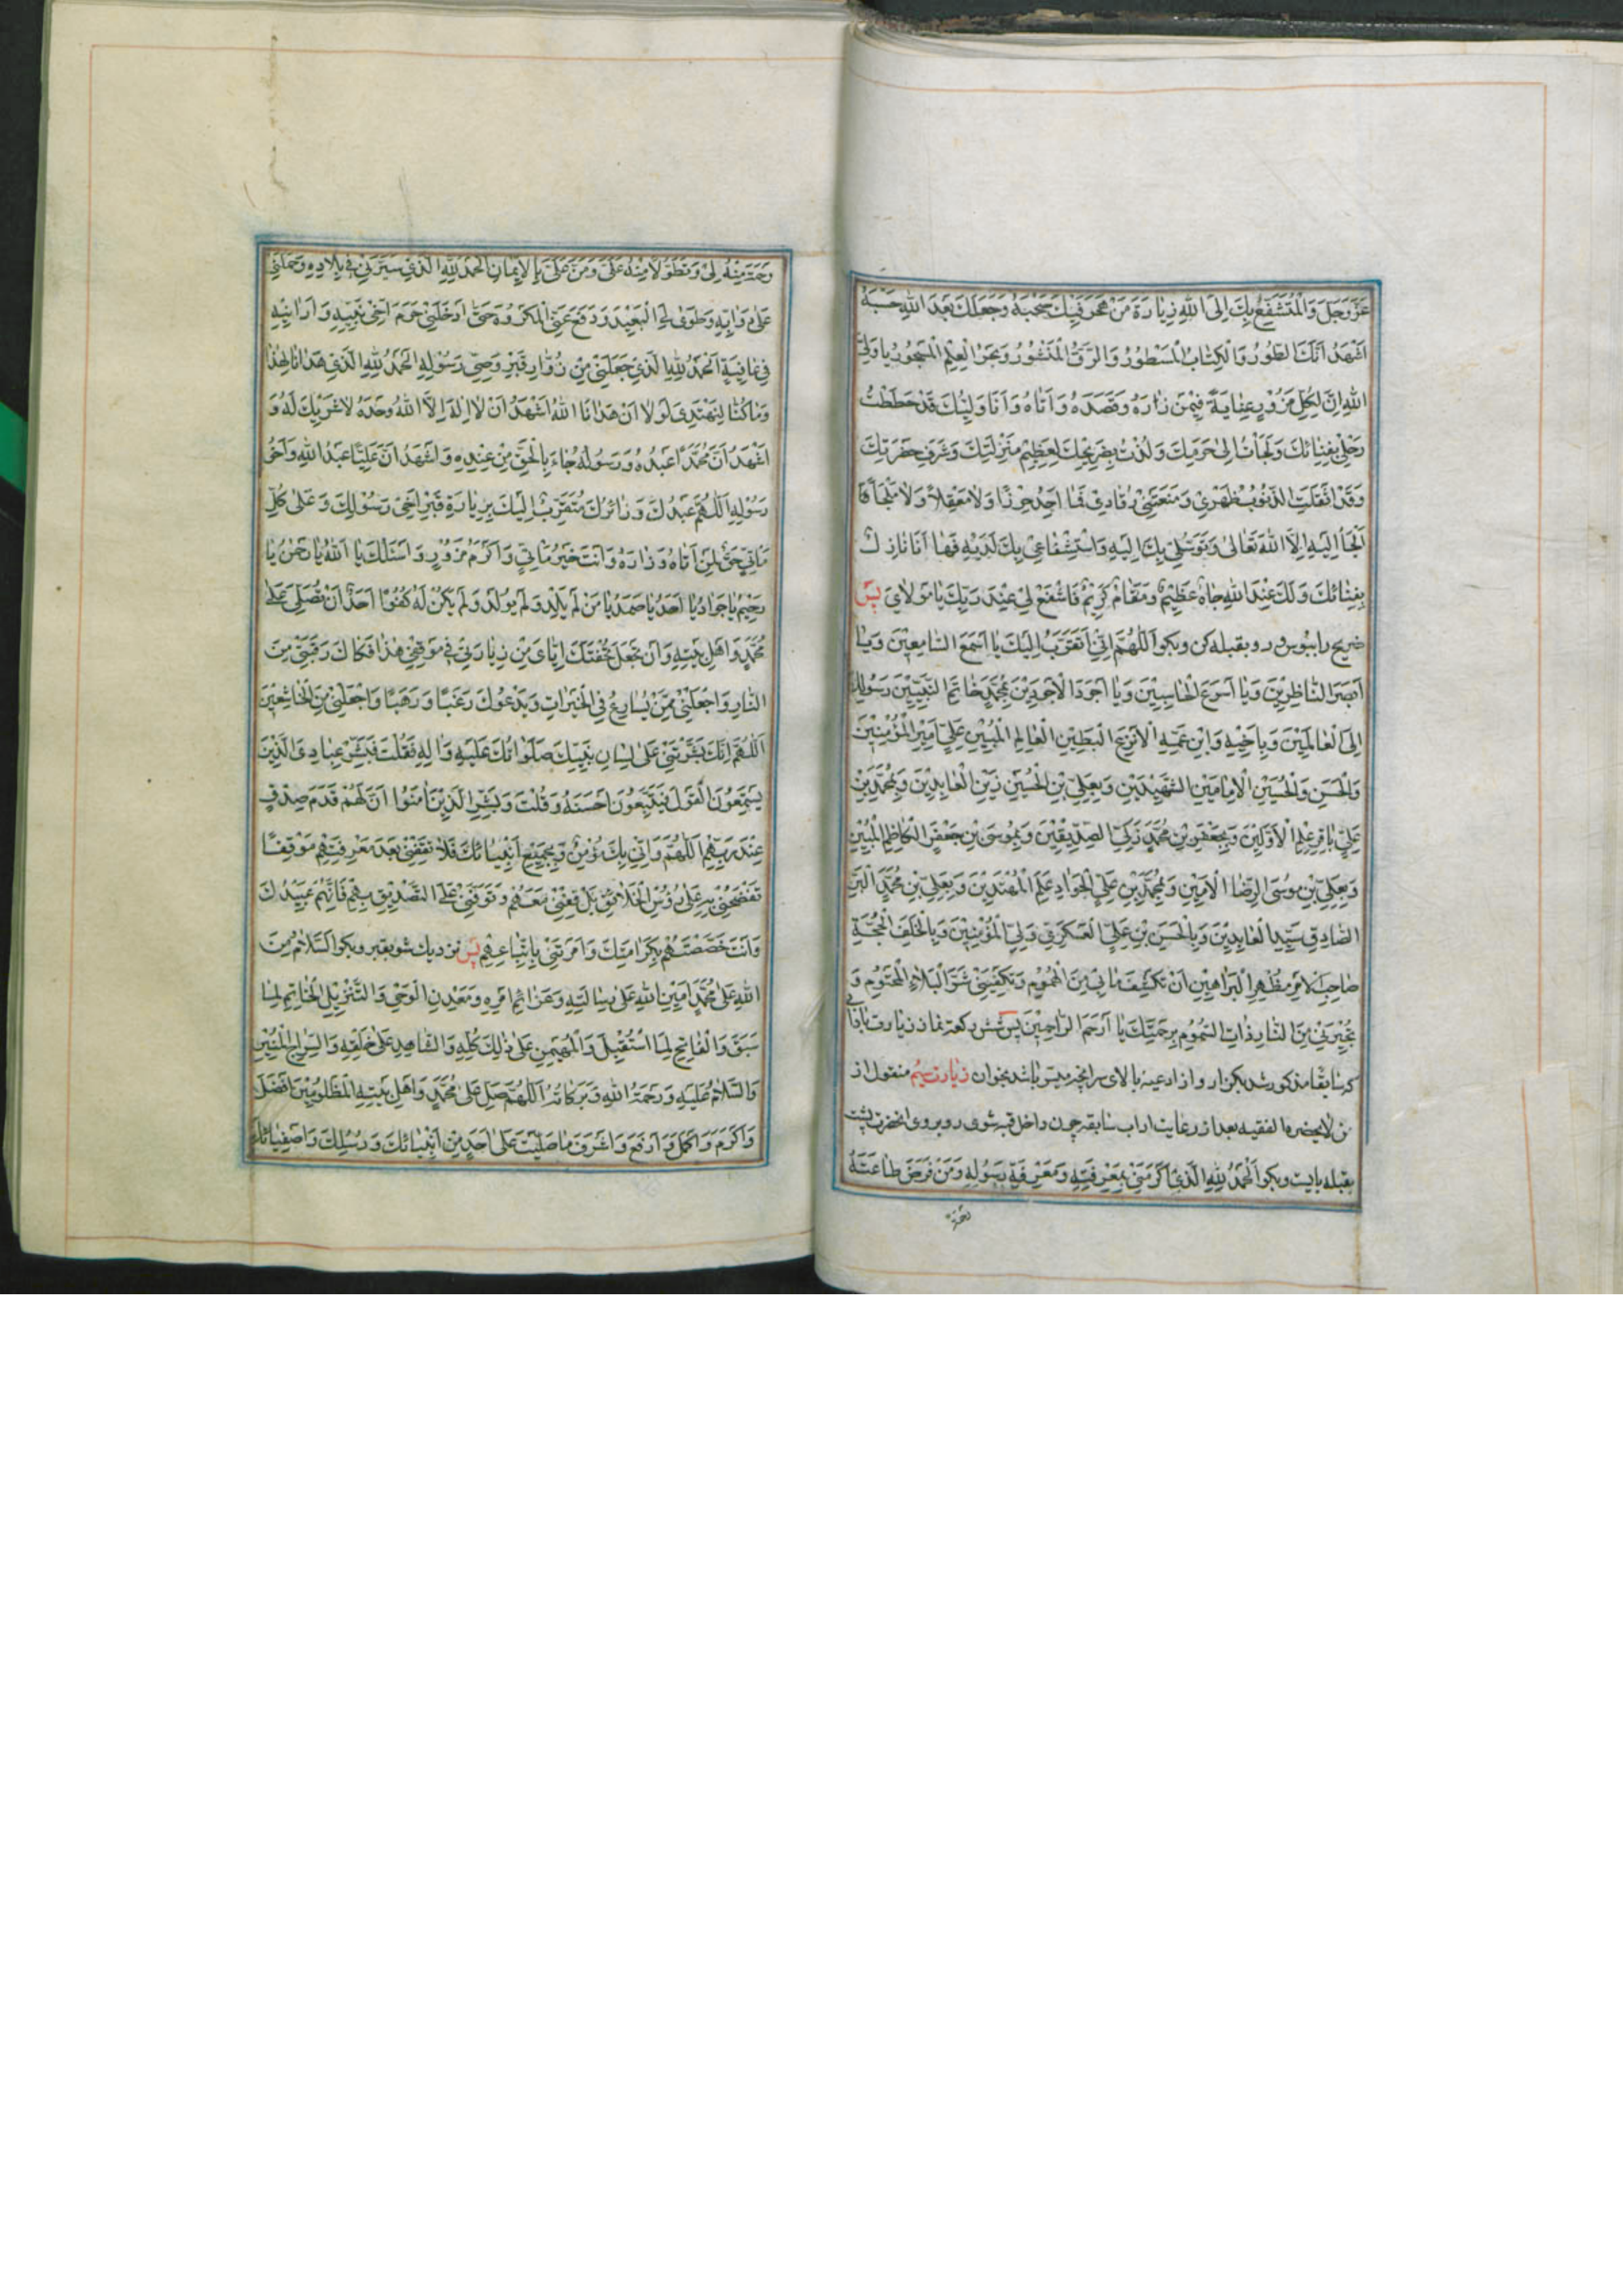 عَزَّ وَجَلَّ وَالْمُتَشَفِّعُ بِكَ اِلَى اللهِ زِيٰارَةَ مَنْ هَجَرَ فِيكَ صَحْبَهُ وَجَعَلَكَ بَعْدَ اللهِ حَسْبَهُ
اَشْهَدُ اَنَّكَ الطُّورُ وَالْكِتٰابُ الْمَسْطُورُ وَالرَّقُّ الْمَنْشُورُ وَبَحْرُ الْعِلْمِ الْمَسْجُورُ يٰا وَلِيَّ
اللهِ اِنَّ لِكُلِّ مَزُوْرٍ عِنٰايَةً فِيْمَنْ زٰارَهُ وَقَصَدَهُ وَاَتٰاهُ وَاَنَا وَلِيُّكَ قَدْ حَطَطْتُ
رَحْلِيْ بِفِنٰائِكَ وَلَجَاْتُ اِلىٰ حَرَمِكَ وَلُذْتُ بِضَرِيْحِكَ لِعَظِيْمِ مَنْزِلَتِكَ وَشَرَفِ حَضْرَتِكَ
وَقَدْ اَثْقَلَتِ الذُّنُوْبُ ظَهْرِيْ وَمَنَعَتْنِيْ رُقٰادِيْ فَمٰا اَجِدُ حِرْزًا وَلاٰ مَعْقِلاً وَلاٰ مَلْجَأً
اَلْجَأُ اِلَيْهِ اِلاَّ اللهَ تَعٰالىٰ وَتَوَسُّلِيْ بِكَ اِلَيْهِ وَاسْتِشْفٰاعِيْ بِكَ لَدَيْهِ فَهٰا اَنَا نٰازِلٌ
بِفِنٰائِكَ وَلَكَ عِنْدَ اللهِ جٰاهٌ عَظِيْمٌ وَمَقٰامٌ كَرِيْمٌ فَاشْفَعْ لِيْ عِنْدَ رَبِّكَ يٰا مَوْلاٰيَ پس
ضريح را ببوس و رو بقبله كن و بكو اَللّٰهُمَّ اِنِّيْ اَتَقَرَّبُ اِلَيْكَ يٰا اَسْمَعَ السّٰامِعِيْنَ وَيٰا
اَبْصَرَ النّٰاظِرِيْنَ وَيٰا اَسْرَعَ الْحٰاسِبِيْنَ وَيٰا اَجْوَدَ الْاَجْوَدِيْنَ بِمُحَمَّدٍ خٰاتَمِ النَّبِيِّيْنَ رَسُوْلِكَ
اِلَى الْعٰالَمِيْنَ وَبِاَخِيْهِ وَابْنِ عَمِّهِ الْاَنْزَعِ الْبَطِيْنِ الْعٰالِمِ الْمُبِيْنِ عَلِيٍّ اَمِيْرِ الْمُؤْمِنِيْنَ
وَالْحَسَنِ وَالْحُسَيْنِ الْاِمٰامَيْنِ الشَّهِيْدَيْنِ وَبِعَلِيِّ بْنِ الْحُسَيْنِ زَيْنِ الْعٰابِدِيْنَ وَبِمُحَمَّدِ بْنِ
عَلِيٍّ بٰاقِرِ عِلْمِ الْاَوَّلِيْنَ وَبِجَعْفَرِ بْنِ مُحَمَّدٍ زَكِيِّ الصِّدِّيْقِيْنَ وَبِمُوْسَى بْنِ جَعْفَرٍ الْكٰاظِمِ الْمُبِيْنِ
وَبِعَلِيِّ بْنِ مُوْسَى الرِّضَا الْاَمِيْنِ وَبِمُحَمَّدِ بْنِ عَلِيٍّ الْجَوٰادِ عَلَمِ الْمُهْتَدِيْنَ وَبِعَلِيِّ بْنِ مُحَمَّدٍ الْبَرِّ
الصّٰادِقِ سَيِّدِ الْعٰابِدِيْنَ وَبِالْحَسَنِ بْنِ عَلِيٍّ الْعَسْكَرِيِّ وَلِيِّ الْمُؤْمِنِيْنَ وَبِالْخَلَفِ الْحُجَّةِ
صٰاحِبِ الْاَمْرِ مُظْهِرِ الْبَرٰاهِيْنِ اَنْ تَكْشِفَ مٰا بِيْ مِنَ الْهُمُوْمِ وَتَكْفِيَنِيْ شَرَّ الْبَلاٰءِ الْمَحْتُوْمِ وَ
تُجِيْرَنِيْ مِنَ النّٰارِ ذٰاتِ السَّمُوْمِ بِرَحْمَتِكَ يٰا اَرْحَمَ الرّٰاحِمِيْنَ پس شش ركعت نماز زيارت
كه سابقا مذكور شد بكن و از ادعيهٔ بالاى سر انچه ميسر باشد بخوان زيارت سيم منقول از
من لا يحضره الفقيه بعد از رعايت اداب سابقه چون داخل قبه شوى رو بروى انحضرت پشت
بقبله بايست و بكو اَلْحَمْدُ لِلّٰهِ الَّذِيْ اَكْرَمَنِيْ بِمَعْرِفَتِهِ وَمَعْرِفَةِ رَسُوْلِهِ وَمَنْ فَرَضَ طٰاعَتَهُ
رَحْمَةً
رَحْمَةً مِنْهُ لِيْ وَتَطَوُّلاً مِنْهُ عَلَيَّ وَمَنَّ عَلَيَّ بِالْاِيْمٰانِ اَلْحَمْدُ لِلّٰهِ الَّذِيْ سَيَّرَنِيْ فِيْ بِلاٰدِهِ وَحَمَلَنِيْ
عَلىٰ دَوٰابِّهِ وَطَوٰى لِيَ الْبَعِيْدَ وَدَفَعَ عَنِّيَ الْمَكْرُوْهَ حَتّٰى اَدْخَلَنِيْ حَرَمَ اَخِيْ نَبِيِّهِ وَاَرٰانِيْهِ
فِيْ عٰافِيَةٍ اَلْحَمْدُ لِلّٰهِ الَّذِيْ جَعَلَنِيْ مِنْ زُوّٰارِ قَبْرِ وَصِيِّ رَسُوْلِهِ اَلْحَمْدُ لِلّٰهِ الَّذِيْ هَدٰانٰا لِهٰذٰا
وَمٰا كُنّٰا لِنَهْتَدِيَ لَوْ لاٰ اَنْ هَدٰانَا اللهُ اَشْهَدُ اَنْ لاٰ اِلٰهَ اِلاَّ اللهُ وَحْدَهُ لاٰ شَرِيْكَ لَهُ وَ
اَشْهَدُ اَنَّ مُحَمَّدًا عَبْدُهُ وَرَسُوْلُهُ جٰاءَ بِالْحَقِّ مِنْ عِنْدِهِ وَاَشْهَدُ اَنَّ عَلِيًّا عَبْدُ اللهِ وَاَخُوْ
رَسُوْلِهِ اَللّٰهُمَّ عَبْدُكَ وَزٰائِرُكَ مُتَقَرِّبٌ اِلَيْكَ بِزِيٰارَةِ قَبْرِ اَخِيْ رَسُوْلِكَ وَعَلىٰ كُلِّ
مَاْتِيٍّ حَقٌّ لِمَنْ اَتٰاهُ وَزٰارَهُ وَاَنْتَ خَيْرُ مَاْتِيٍّ وَاَكْرَمُ مَزُوْرٍ وَاَسْئَلُكَ يٰا اَللهُ يٰا رَحْمٰنُ يٰا
رَحِيْمُ يٰا جَوٰادُ يٰا اَحَدُ يٰا صَمَدُ يٰا مَنْ لَمْ يَلِدْ وَلَمْ يُوْلَدْ وَلَمْ يَكُنْ لَهُ كُفُوًا اَحَدٌ اَنْ تُصَلِّيَ عَلىٰ
مُحَمَّدٍ وَاَهْلِ بَيْتِهِ وَاَنْ تَجْعَلَ تُحْفَتَكَ اِيّٰايَ مِنْ زِيٰارَتِيْ فِيْ مَوْقِفِيْ هٰذٰا فَكٰاكَ رَقَبَتِيْ مِنَ
النّٰارِ وَاجْعَلْنِيْ مِمَّنْ يُسٰارِعُ فِي الْخَيْرٰاتِ وَيَدْعُوْكَ رَغَبًا وَرَهَبًا وَاجْعَلْنِيْ مِنَ الْخٰاشِعِيْنَ
اَللّٰهُمَّ اِنَّكَ بَشَّرْتَنِيْ عَلىٰ لِسٰانِ نَبِيِّكَ صَلَوٰاتُكَ عَلَيْهِ وَاٰلِهِ فَقُلْتَ فَبَشِّرْ عِبٰادِيَ الَّذِيْنَ
يَسْتَمِعُوْنَ الْقَوْلَ فَيَتَّبِعُوْنَ اَحْسَنَهُ وَقُلْتَ وَبَشِّرِ الَّذِيْنَ اٰمَنُوْا اَنَّ لَهُمْ قَدَمَ صِدْقٍ
عِنْدَ رَبِّهِمْ اَللّٰهُمَّ وَاِنِّيْ بِكَ مُؤْمِنٌ وَبِجَمِيْعِ اَنْبِيٰائِكَ فَلاٰ تَقِفْنِيْ بَعْدَ مَعْرِفَتِهِمْ مَوْقِفًا
تَفْضَحُنِيْ بِهِ عَلىٰ رُؤُسِ الْخَلاٰئِقِ بَلْ قِفْنِيْ مَعَهُمْ وَتَوَفَّنِيْ عَلَى التَّصْدِيْقِ بِهِمْ فَاِنَّهُمْ عَبِيْدُكَ
وَاَنْتَ خَصَصْتَهُمْ بِكَرٰامَتِكَ وَاَمَرْتَنِيْ بِاتِّبٰاعِهِمْ پس نزديك شو بقبر و بكو اَلسَّلاٰمُ مِنَ
اللهِ عَلىٰ مُحَمَّدٍ اَمِيْنِ اللهِ عَلىٰ رِسٰالَتِهِ وَعَزٰائِمِ اَمْرِهِ وَمَعْدِنِ الْوَحْيِ وَالتَّنْزِيْلِ الْخٰاتِمِ لِمٰا
سَبَقَ وَالْفٰاتِحِ لِمَا اسْتُقْبِلَ وَالْمُهَيْمِنِ عَلىٰ ذٰلِكَ كُلِّهِ وَالشّٰاهِدِ عَلىٰ خَلْقِهِ وَالسِّرٰاجِ الْمُنِيْرِ
وَالسَّلاٰمُ عَلَيْهِ وَرَحْمَةُ اللهِ وَبَرَكٰاتُهُ اَللّٰهُمَّ صَلِّ عَلىٰ مُحَمَّدٍ وَاَهْلِ بَيْتِهِ الْمَظْلُوْمِيْنَ اَفْضَلَ
وَاَكْرَمَ وَاَكْمَلَ وَاَرْفَعَ وَاَشْرَفَ مٰا صَلَّيْتَ عَلىٰ اَحَدٍ مِنْ اَنْبِيٰائِكَ وَرُسُلِكَ وَاَصْفِيٰائِكَ